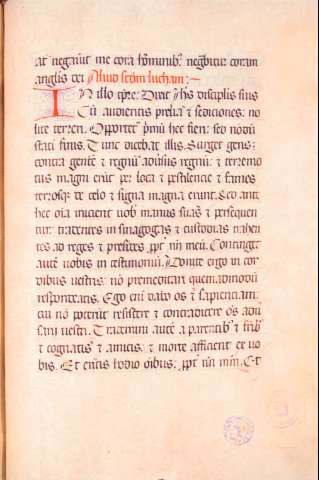 at negauit me corā hominibꝰ negabitur coram
anglis dei Aliud scđm lucham:
In illo tpre: Dixit ihs discipulis suis
Cū audieritis prelia ⁊ sediciones: no
lite terreri. Oportet primū hec fieri: sed nōdū
stati finis. Tunc dicebat illis. Surget gens
contra gentē ⁊ regnū aduersus regnū: ⁊ terremo
tus magni erūt per loca ⁊ pestilencie ⁊ fames
terrorsqꝫ de celo ⁊ signa magna erunt. Sed ante
hec oīa inicient uob manus suas ⁊ persequen
tur tradentes in sinagogas ⁊ custodias trahen
tes ad reges ⁊ presides ppt nm̄ meū. Continget
autē uobis in testimoniū. Ponite ergo in cor
dibus uestris: nō premeditari quemadmodū
respondeatis. Ego eni dabo os ⁊ sapienciam:
cui nō poterūt resistere ⁊ contradicere oīs adū
sarii uestri. Trademini autē a parentibꝰ ⁊ frībꝰ
⁊ cognatis ⁊ amicis: ⁊ morte afficient ex uo
bis. Et eritis hodio oībus: ppt nm̄ mm̄. Et